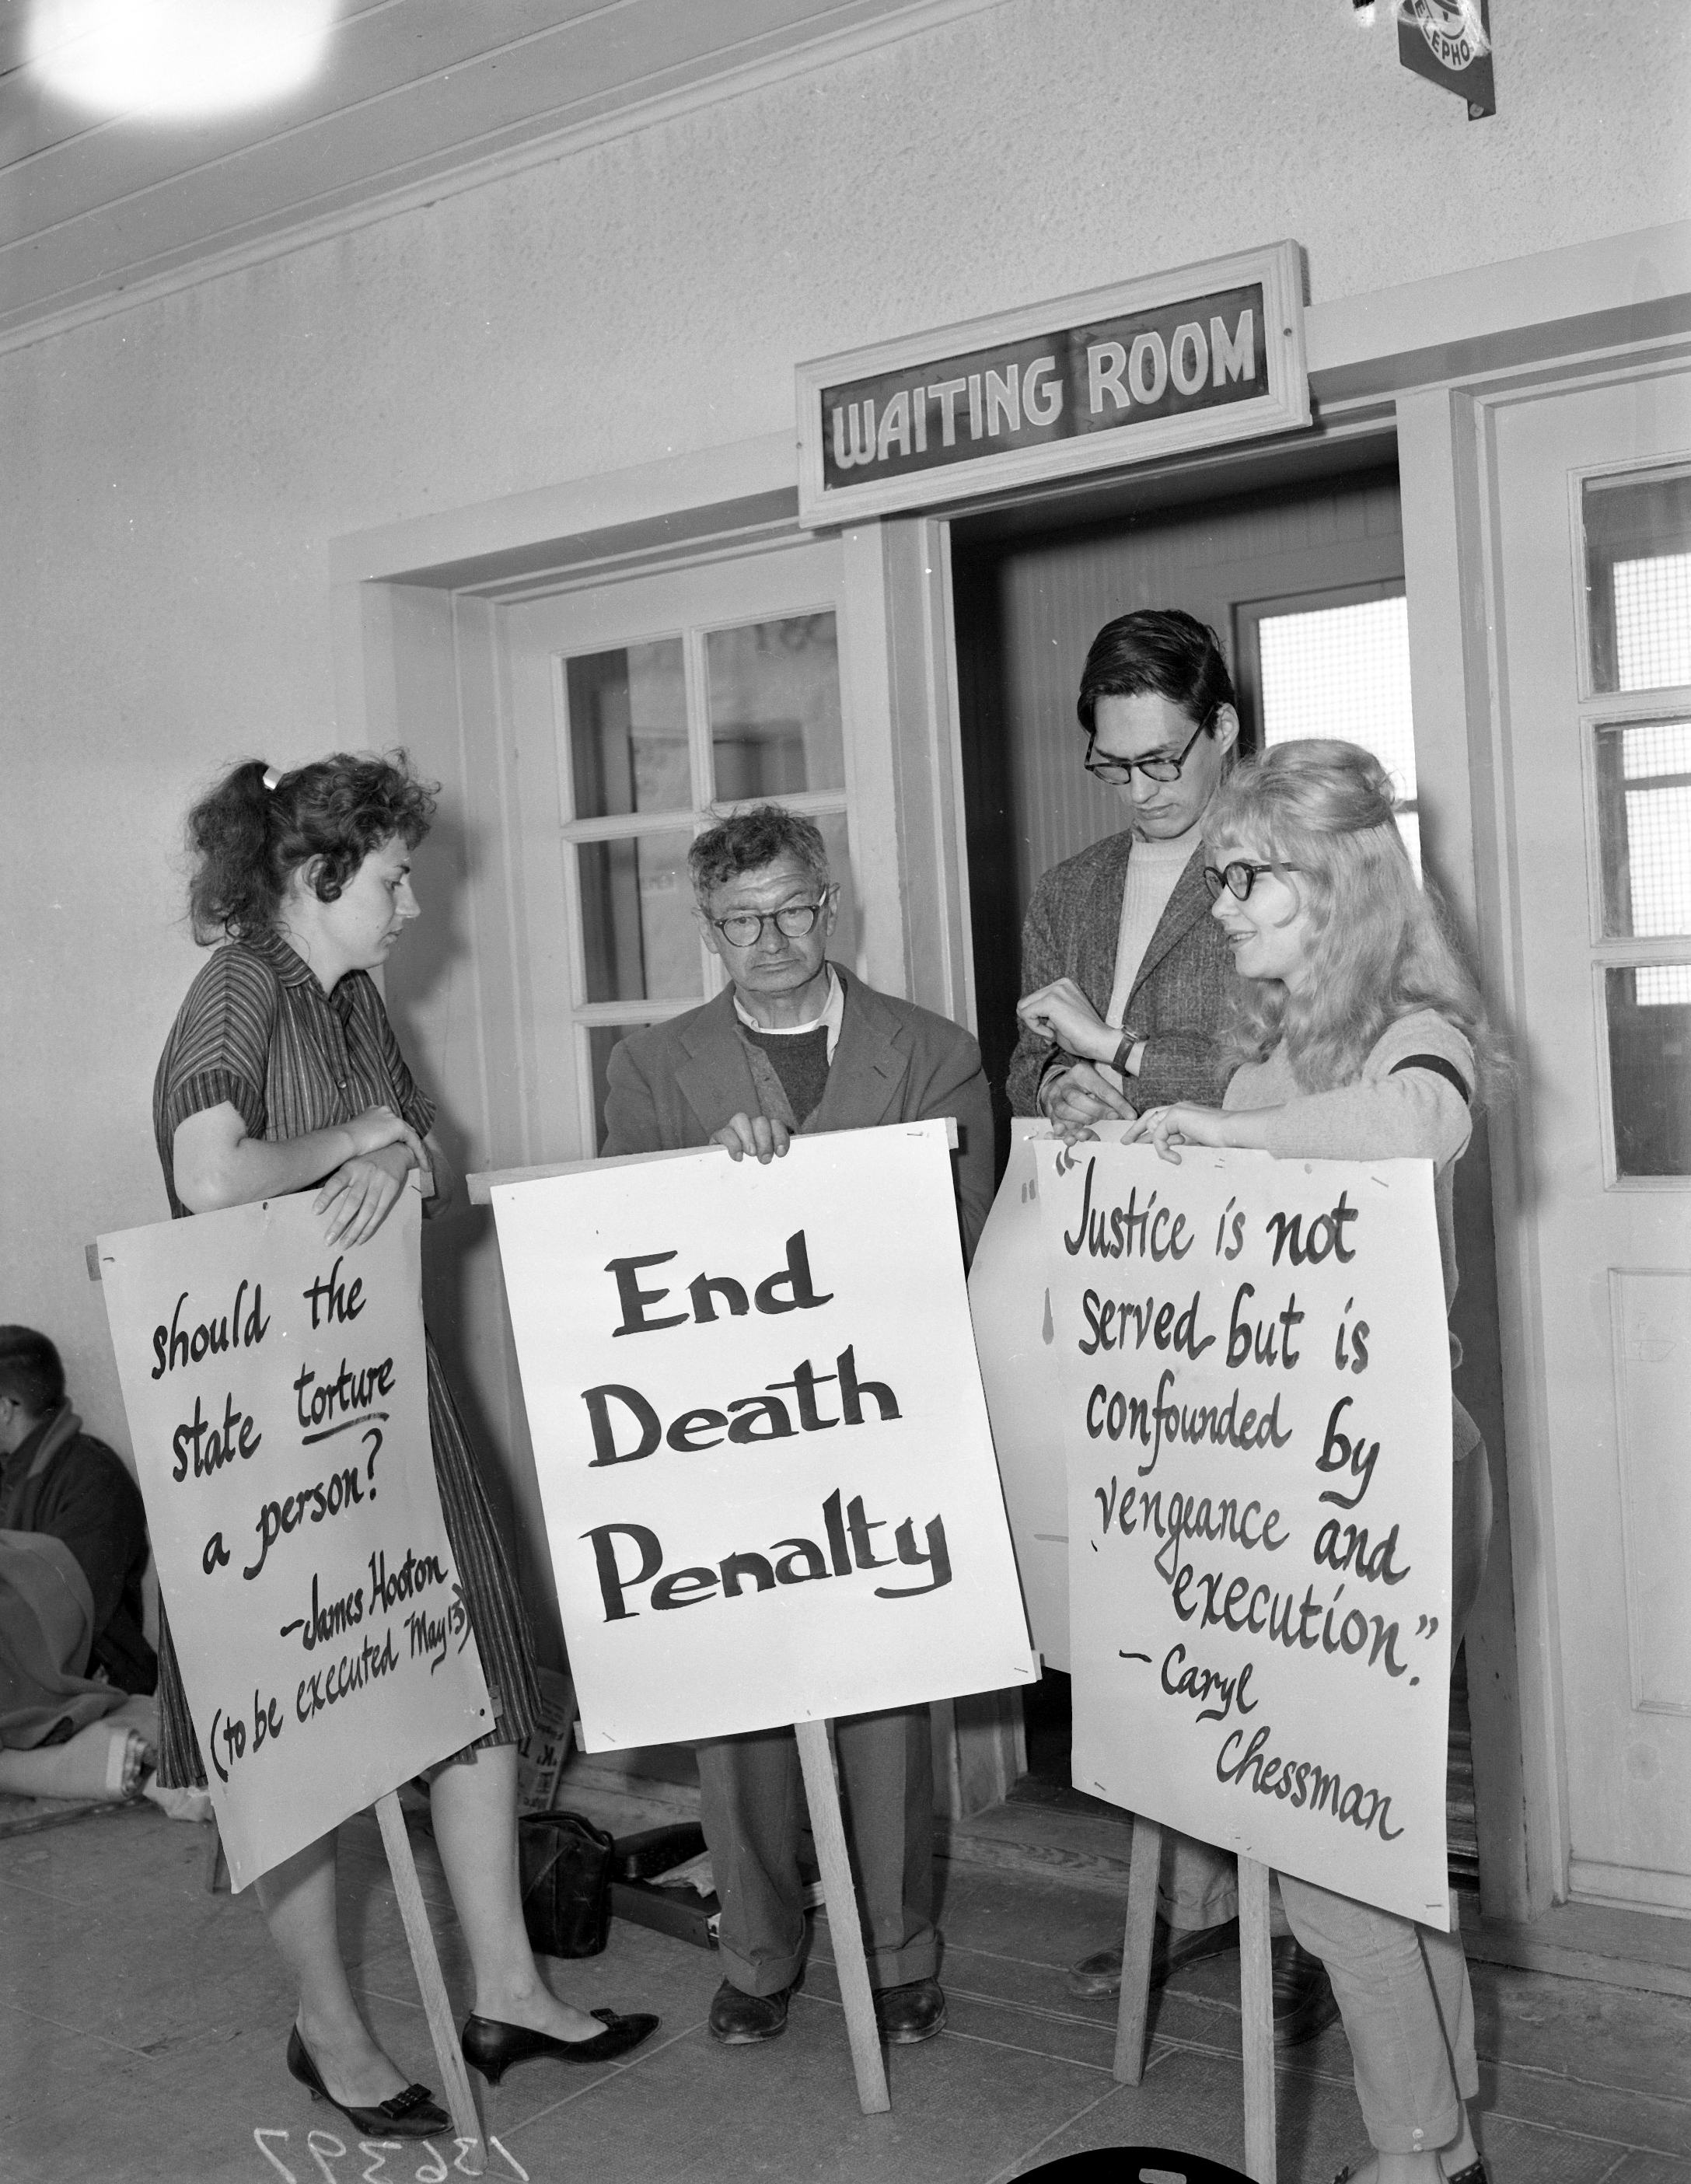 ELEPHO
WAITING ROOM
should the
state torture
a person?
—James Hooton
(to be executed May 13)
End
Death
Penalty
"Justice is not
served but is
confounded by
vengeance and
execution."
—Caryl
Chessman
136397